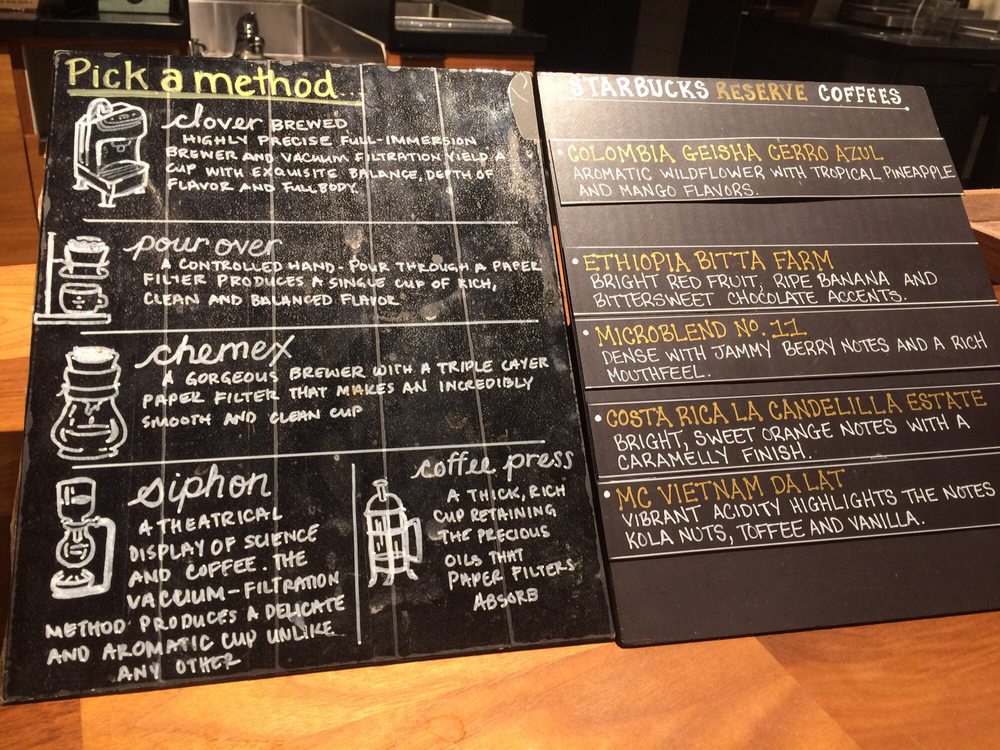 Pick a method...
clover BREWED
HIGHLY PRECISE FULL-IMMERSION
BREWER AND VACUUM FILTRATION YIELD A
CUP WITH EXQUISITE BALANCE, DEPTH OF
FLAVOR AND FULL BODY.
pour over
A CONTROLLED HAND-POUR THROUGH A PAPER
FILTER PRODUCES A SINGLE CUP OF RICH,
CLEAN AND BALANCED FLAVOR
chemex
A GORGEOUS BREWER WITH A TRIPLE LAYER
PAPER FILTER THAT MAKES AN INCREDIBLY
SMOOTH AND CLEAN CUP
siphon
A THEATRICAL
DISPLAY OF SCIENCE
AND COFFEE. THE
VACUUM-FILTRATION
METHOD PRODUCES A DELICATE
AND AROMATIC CUP UNLIKE
ANY OTHER
coffee press
A THICK, RICH
CUP RETAINING
THE PRECIOUS
OILS THAT
PAPER FILTERS
ABSORB
STARBUCKS RESERVE COFFEES.
• COLOMBIA GEISHA CERRO AZUL
AROMATIC WILDFLOWER WITH TROPICAL PINEAPPLE
AND MANGO FLAVORS.
• ETHIOPIA BITTA FARM
BRIGHT RED FRUIT, RIPE BANANA AND
BITTERSWEET CHOCOLATE ACCENTS.
• MICROBLEND NO. 11
DENSE WITH JAMMY BERRY NOTES AND A RICH
MOUTHFEEL.
• COSTA RICA LA CANDELILLA ESTATE
BRIGHT, SWEET ORANGE NOTES WITH A
CARAMELLY FINISH.
• MC VIETNAM DA LAT
VIBRANT ACIDITY HIGHLIGHTS THE NOTES
KOLA NUTS, TOFFEE AND VANILLA.